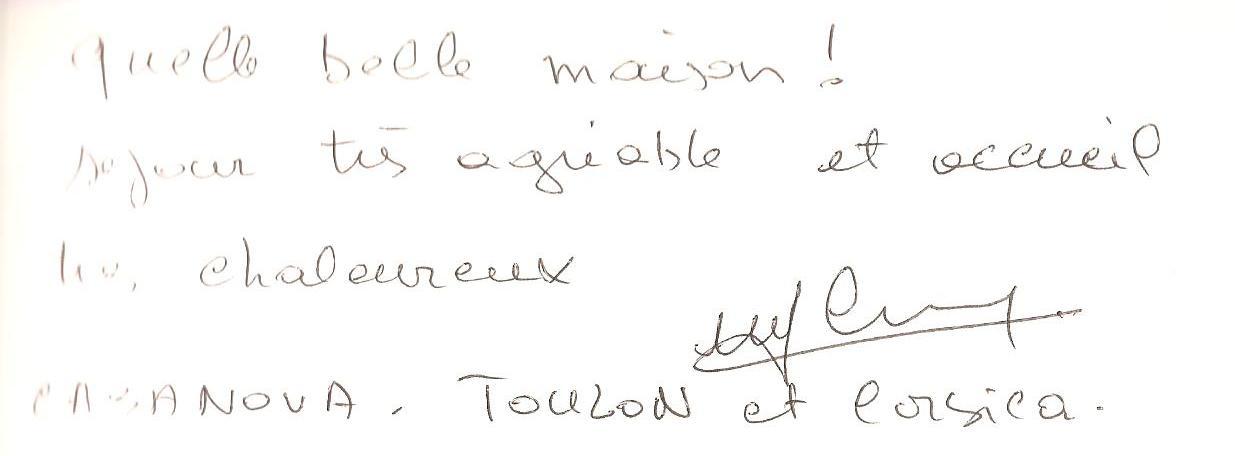 quelle belle maison !
séjour très agréable et accueil
très chaleureux
CASANOVA. TOULON et Corsica.